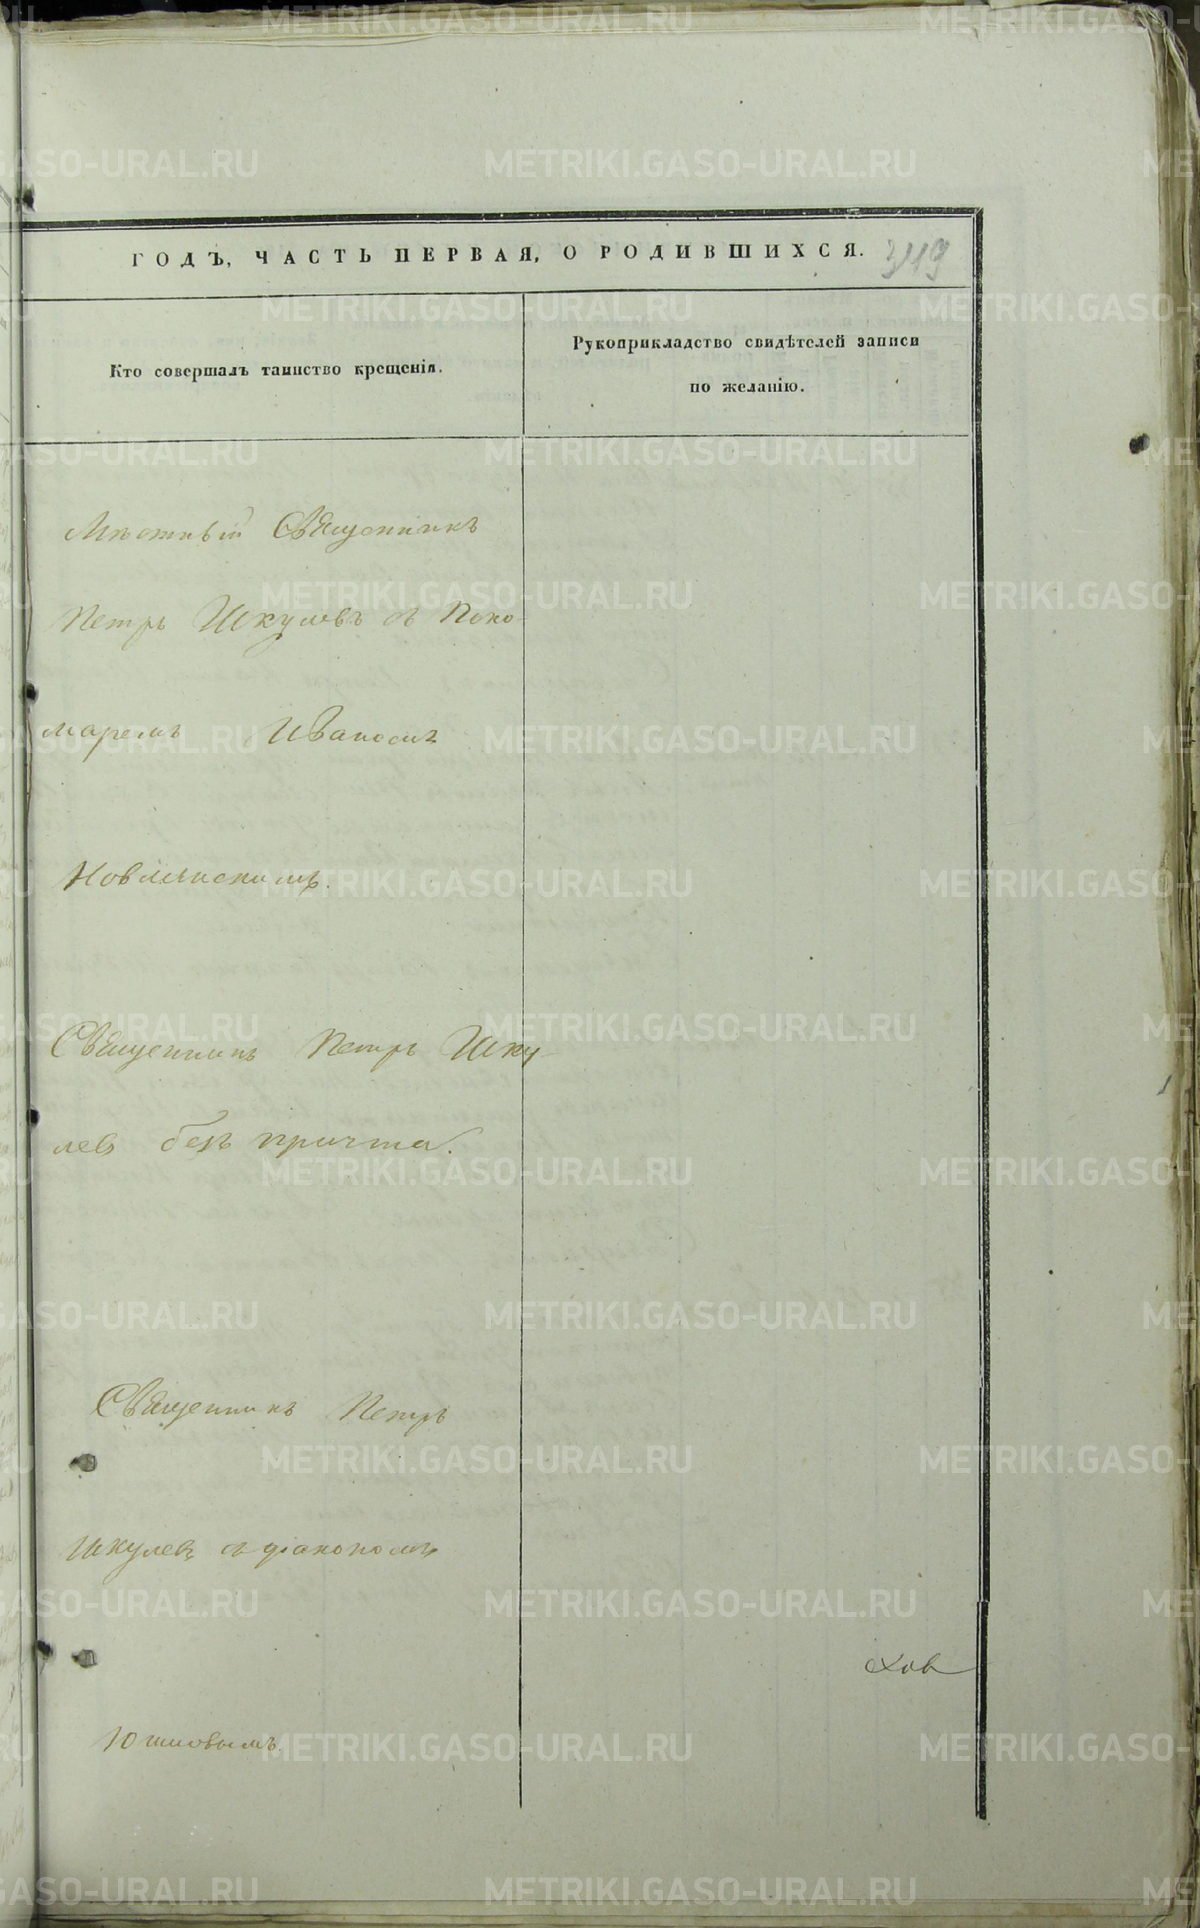 ГОДЪ, ЧАСТЬ ПЕРВАЯ, О РОДИВШИХСЯ. 349
Кто совершалъ таинство крещенія.
Рукоприкладство свидѣтелей записи
по желанію.
Мѣстный Священникъ
Петръ Шкулевъ съ Поно-
маремъ Иваномъ
Священникъ Петръ Шку-
левъ безъ причта.
Священникъ Петръ
Шкулевъ съ діакономъ
Юшковымъ.
METRIKI.GASO-URAL.RU